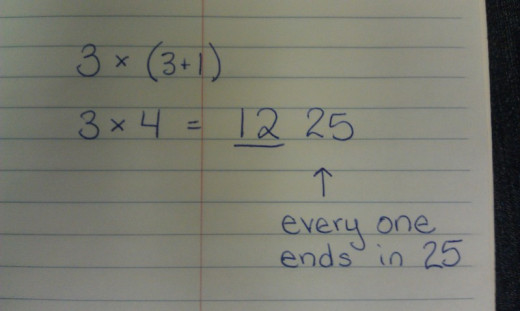 3 × (3+1)
3 × 4 = 12 25
↑
every one
ends in 25